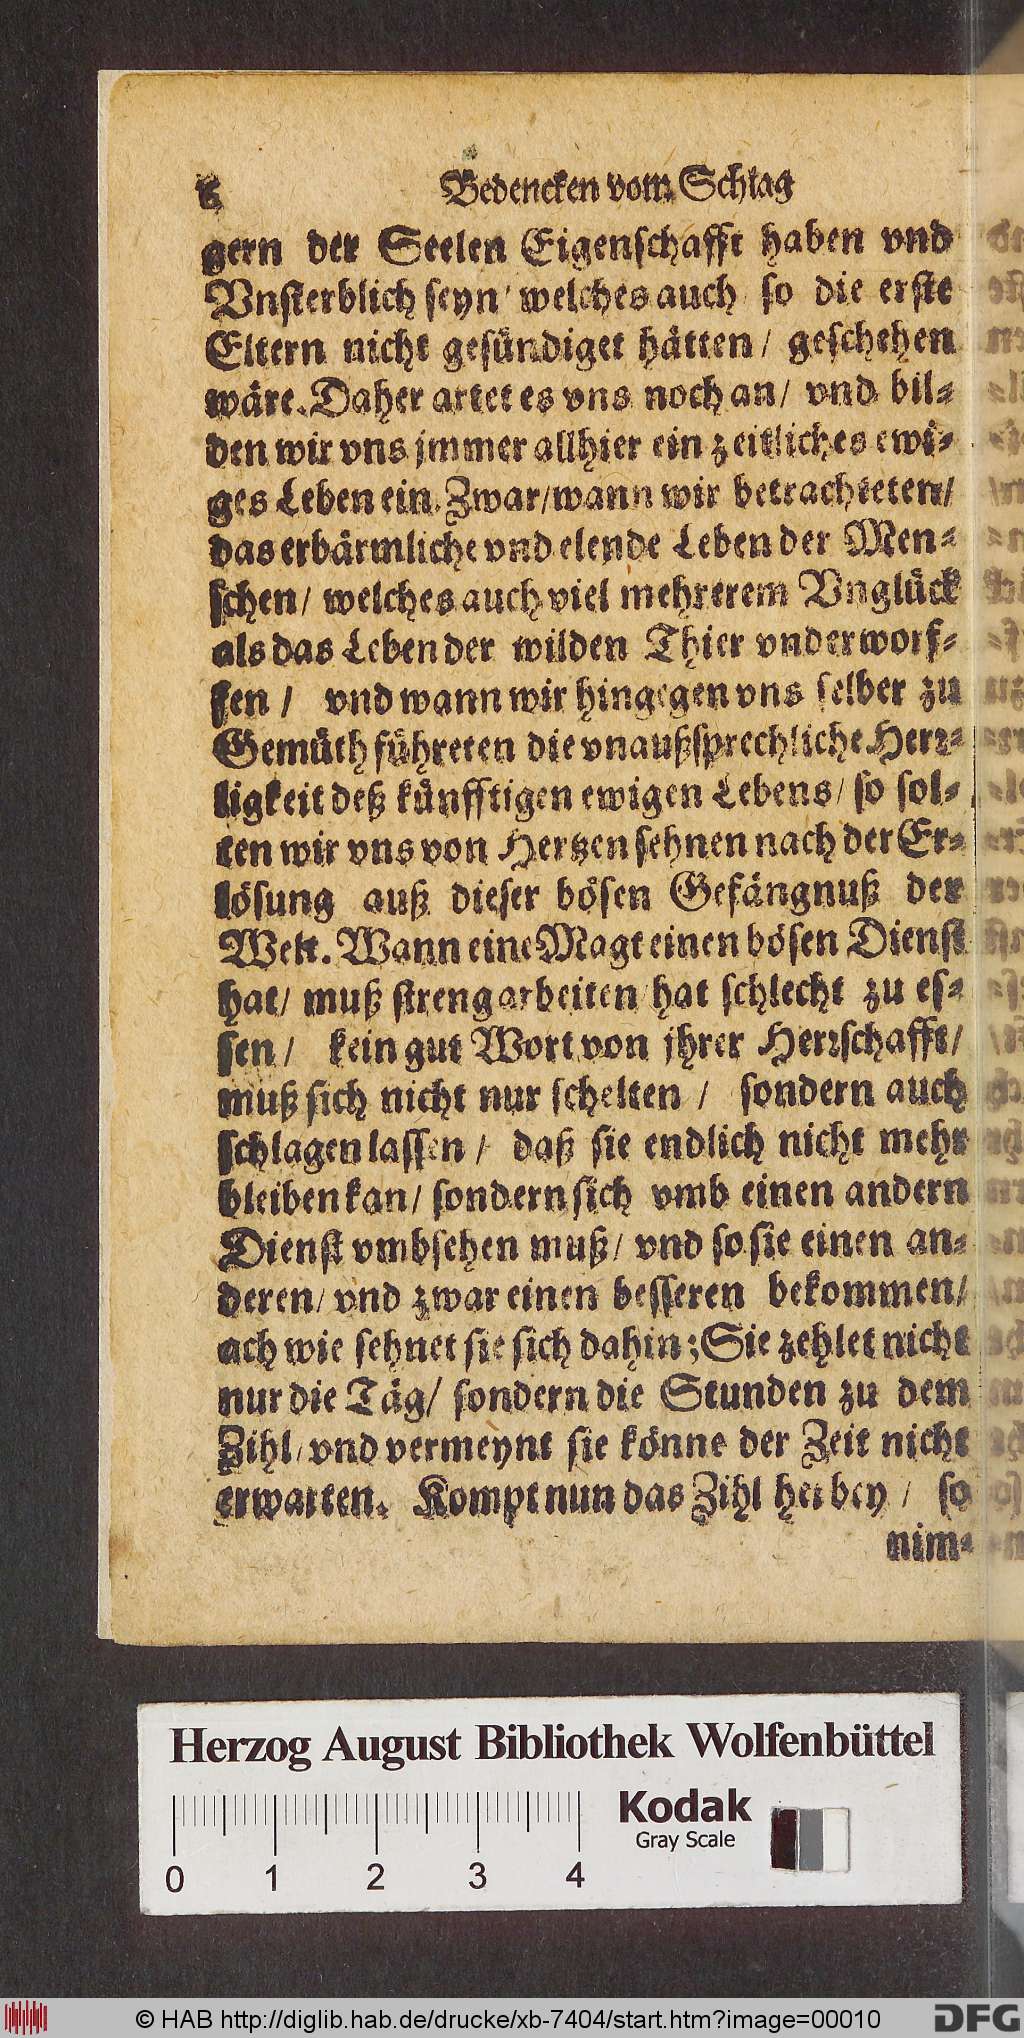 6 Bedencken vom Schlag
gern der Seelen Eigenschafft haben vnd
Vnsterblich seyn / welches auch so die erste
Eltern nicht gesündiget hätten / geschehen
wäre. Daher artet es vns noch an / vnd bil-
den wir vns jmmer allhier ein zeitliches ewi-
ges Leben ein. Zwar / wann wir betrachteten /
das erbärmliche vnd elende Leben der Men-
schen / welches auch viel mehrerem Vnglück
als das Leben der wilden Thier vnderworf-
fen / vnd wann wir hingegen vns selber zu
Gemüth führeten die vnaußsprechliche Herr-
ligkeit deß künfftigen ewigen Lebens / so sol-
ten wir vns von Hertzen sehnen nach der Er-
lösung auß dieser bösen Gefängnuß der
Welt. Wann eine Magt einen bösen Dienst
hat / muß streng arbeiten / hat schlecht zu es-
sen / kein gut Wort von jhrer Herrschafft /
muß sich nicht nur schelten / sondern auch
schlagen lassen / daß sie endlich nicht mehr
bleiben kan / sondern sich vmb einen andern
Dienst vmbsehen muß / vnd so sie einen an-
deren / vnd zwar einen besseren bekommen /
ach wie sehnet sie sich dahin; Sie zehlet nicht
nur die Täg / sondern die Stunden zu dem
Zihl / vnd vermeynt sie könne der Zeit nicht
erwarten. Kompt nun das Zihl herbey / so
nim-
Herzog August Bibliothek Wolfenbüttel
Kodak
Gray Scale
0 1 2 3 4
© HAB http://diglib.hab.de/drucke/xb-7404/start.htm?image=00010
DFG